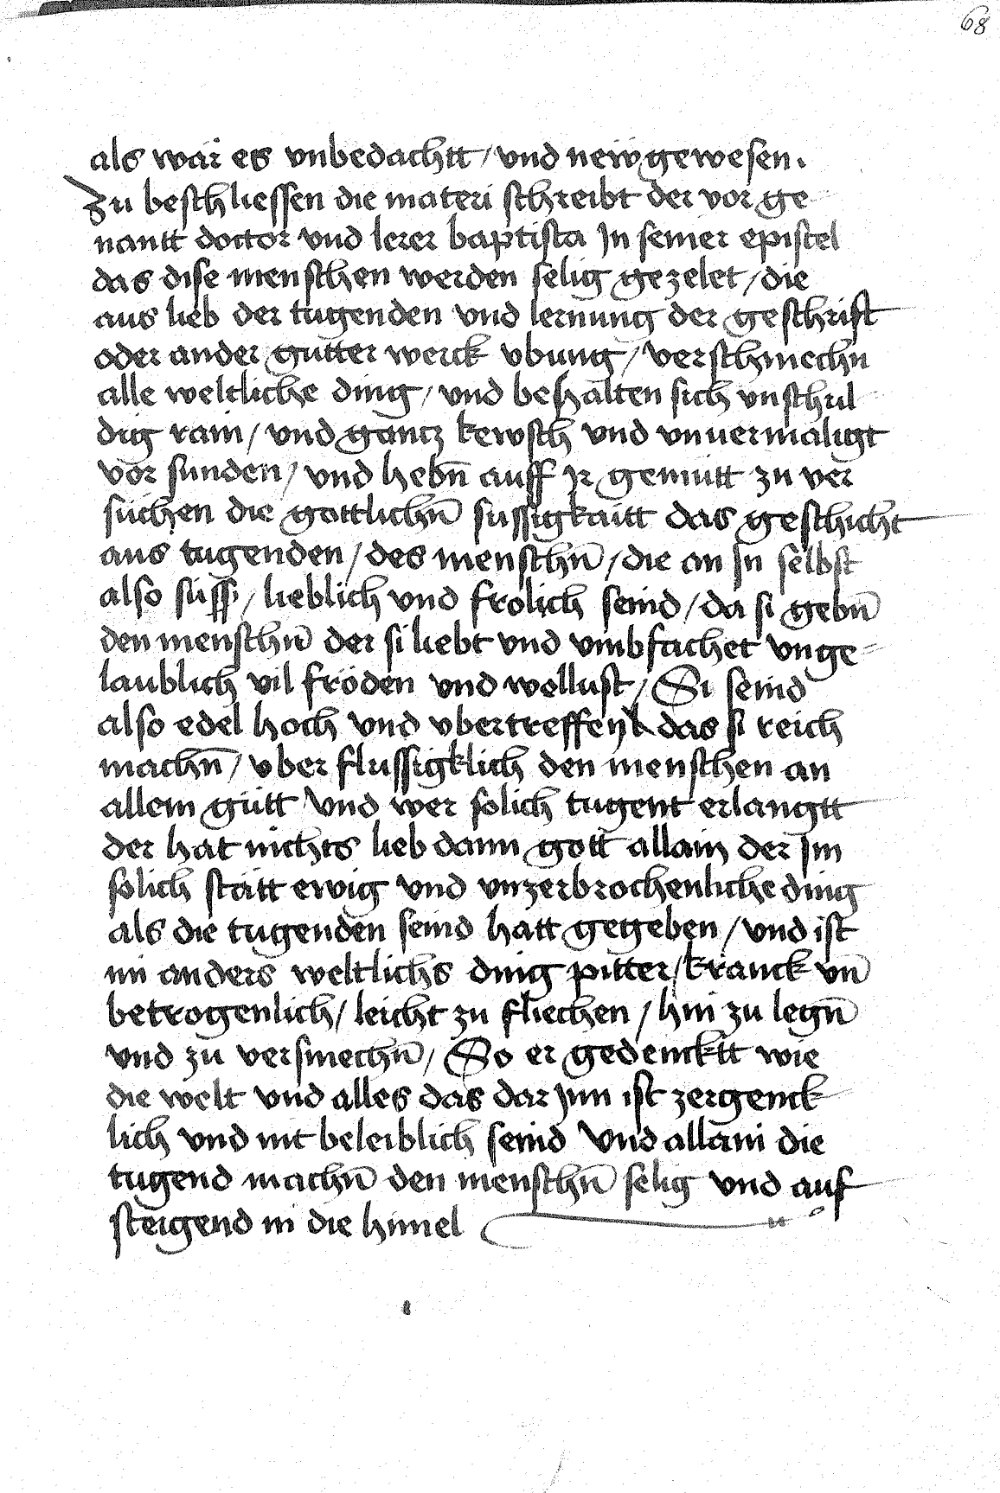 68
als wär es vnbedachtt / vnd neẅ gewesen .
Zu beschliessen die materi schreibt der vor ge
nantt doctor vnd lerer baptista In seiner epistel
das dise menschen werden selig gezelet / die
aus lieb der tugenden vnd lernung der geschrift
oder ander gutter werck vbung / verschmechn
alle weltliche ding / vnd behalten sich vnschul
dig rain / vnd gantz kewsch vnd vnuermaligt
vor sunden / vnd hebn̄ auff Ir gemütt zu ver
süchen die gottlichn̄ sussigkaitt das geschicht
aus tugenden / des menschn̄ / die an In selbst
also süss / lieblich vnd frölich seind / da si gebn̄
den menschn̄ der si liebt vnd vmbfachet vnge=
laublich vil fröden vnd wollust / Si seind
also edel hoch vnd vbertreffen das si reich
machn̄ / vber flussigklich den menschen an
allem gütt vnd wer solich tugent erlangtt
der hat nichts lieb dann gott allain der Im
solich stätt ewig vnd vnzerbrochenliche ding
als die tugenden seind hatt gegeben / vnd ist
im anders weltlichs ding pitter / kranck vn̄
betrogenlich / leicht zu fliechen / hin zu legn̄
vnd zu versmechn̄ / So er gedencktt wie
die welt vnd alles das dar Inn ist zergenck
lich vnd nit beleiblich seind vnd allain die
tugend machn̄ den menschn̄ selig vnd auf
steigend in die himel